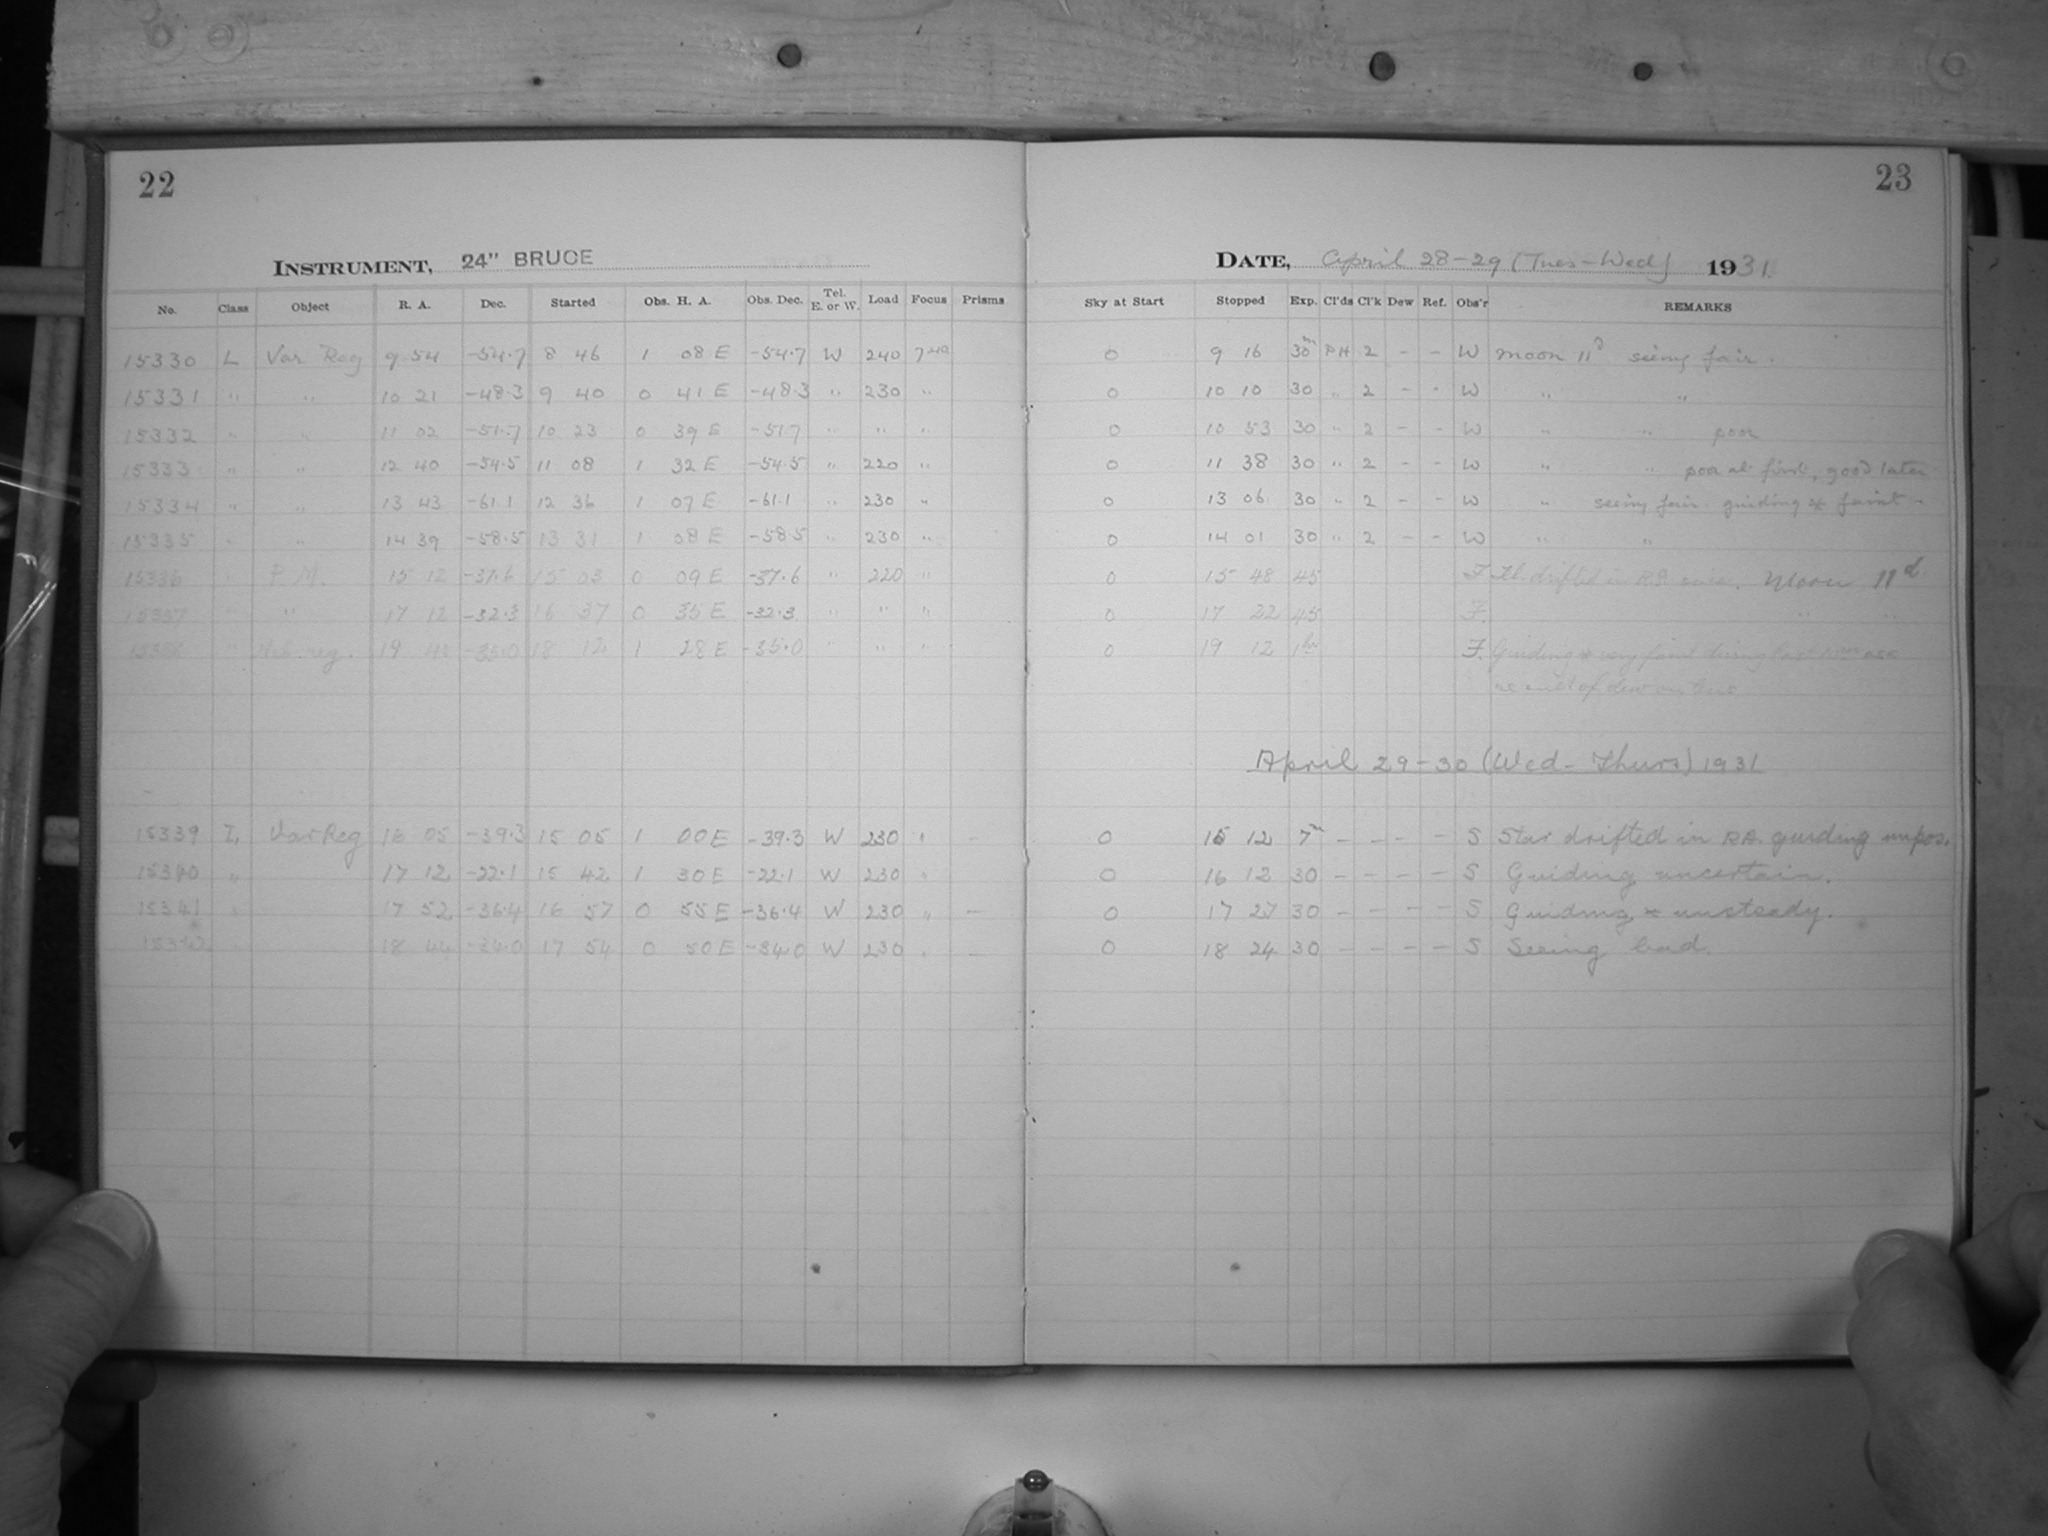 22
23
INSTRUMENT, 24" BRUCE
DATE, April 28-29 (Tues-Wed) 1931.
No. Class Object R. A. Dec. Started Obs. H. A. Obs. Dec. Tel. E. or W. Load Focus Prisms Sky at Start Stopped Exp. Cl'ds Cl'k Dew Ref. Obs'r REMARKS
15330 L Var Reg 9 54 -54.7 8 46 1 08 E -54.7 W 240 7.40 0 9 16 30m PH 2 - - W moon 11d seeing fair.
15331 " " 10 21 -48.3 9 40 0 41 E -48.3 " 230 " 0 10 10 30 " 2 - - W " "
15332 " " 11 02 -51.7 10 23 0 39 E -51.7 " " " 0 10 53 30 " 2 - - W " " poor
15333 " " 12 40 -54.5 11 08 1 32 E -54.5 " 220 " 0 11 38 30 " 2 - - W " " poor at first, good later
15334 " " 13 43 -61.1 12 36 1 07 E -61.1 " 230 " 0 13 06 30 " 2 - - W " seeing fair. guiding * faint.
15335 " " 14 39 -58.5 13 31 1 08 E -58.5 " 230 " 0 14 01 30 " 2 - - W " "
15336 " P. M. 15 12 -37.6 15 03 0 09 E -37.6 " 220 " 0 15 48 45 F drifted in RA Moon 11d.
15337 " " 17 12 -32.3 16 37 0 35 E -32.3 " " " 0 17 22 45 F. "
15338 " reg. 19 40 -35.0 18 12 1 28 E -35.0 " " " 0 19 12 1hr F. Guiding * very faint during last as a
result of dew on lens
April 29-30 (Wed-Thurs) 1931
15339 L Var Reg 16 05 -39.3 15 05 1 00 E -39.3 W 230 " - 0 15 12 7m - - - - S Star drifted in RA. guiding impos.
15340 " 17 12 -22.1 15 42 1 30 E -22.1 W 230 " 0 16 12 30 - - - - S Guiding uncertain.
15341 " 17 52 -36.4 16 57 0 55 E -36.4 W 230 " - 0 17 27 30 - - - - S Guiding * unsteady.
15342 18 44 -34.0 17 54 0 50 E -34.0 W 230 " - 0 18 24 30 - - - - S Seeing bad.